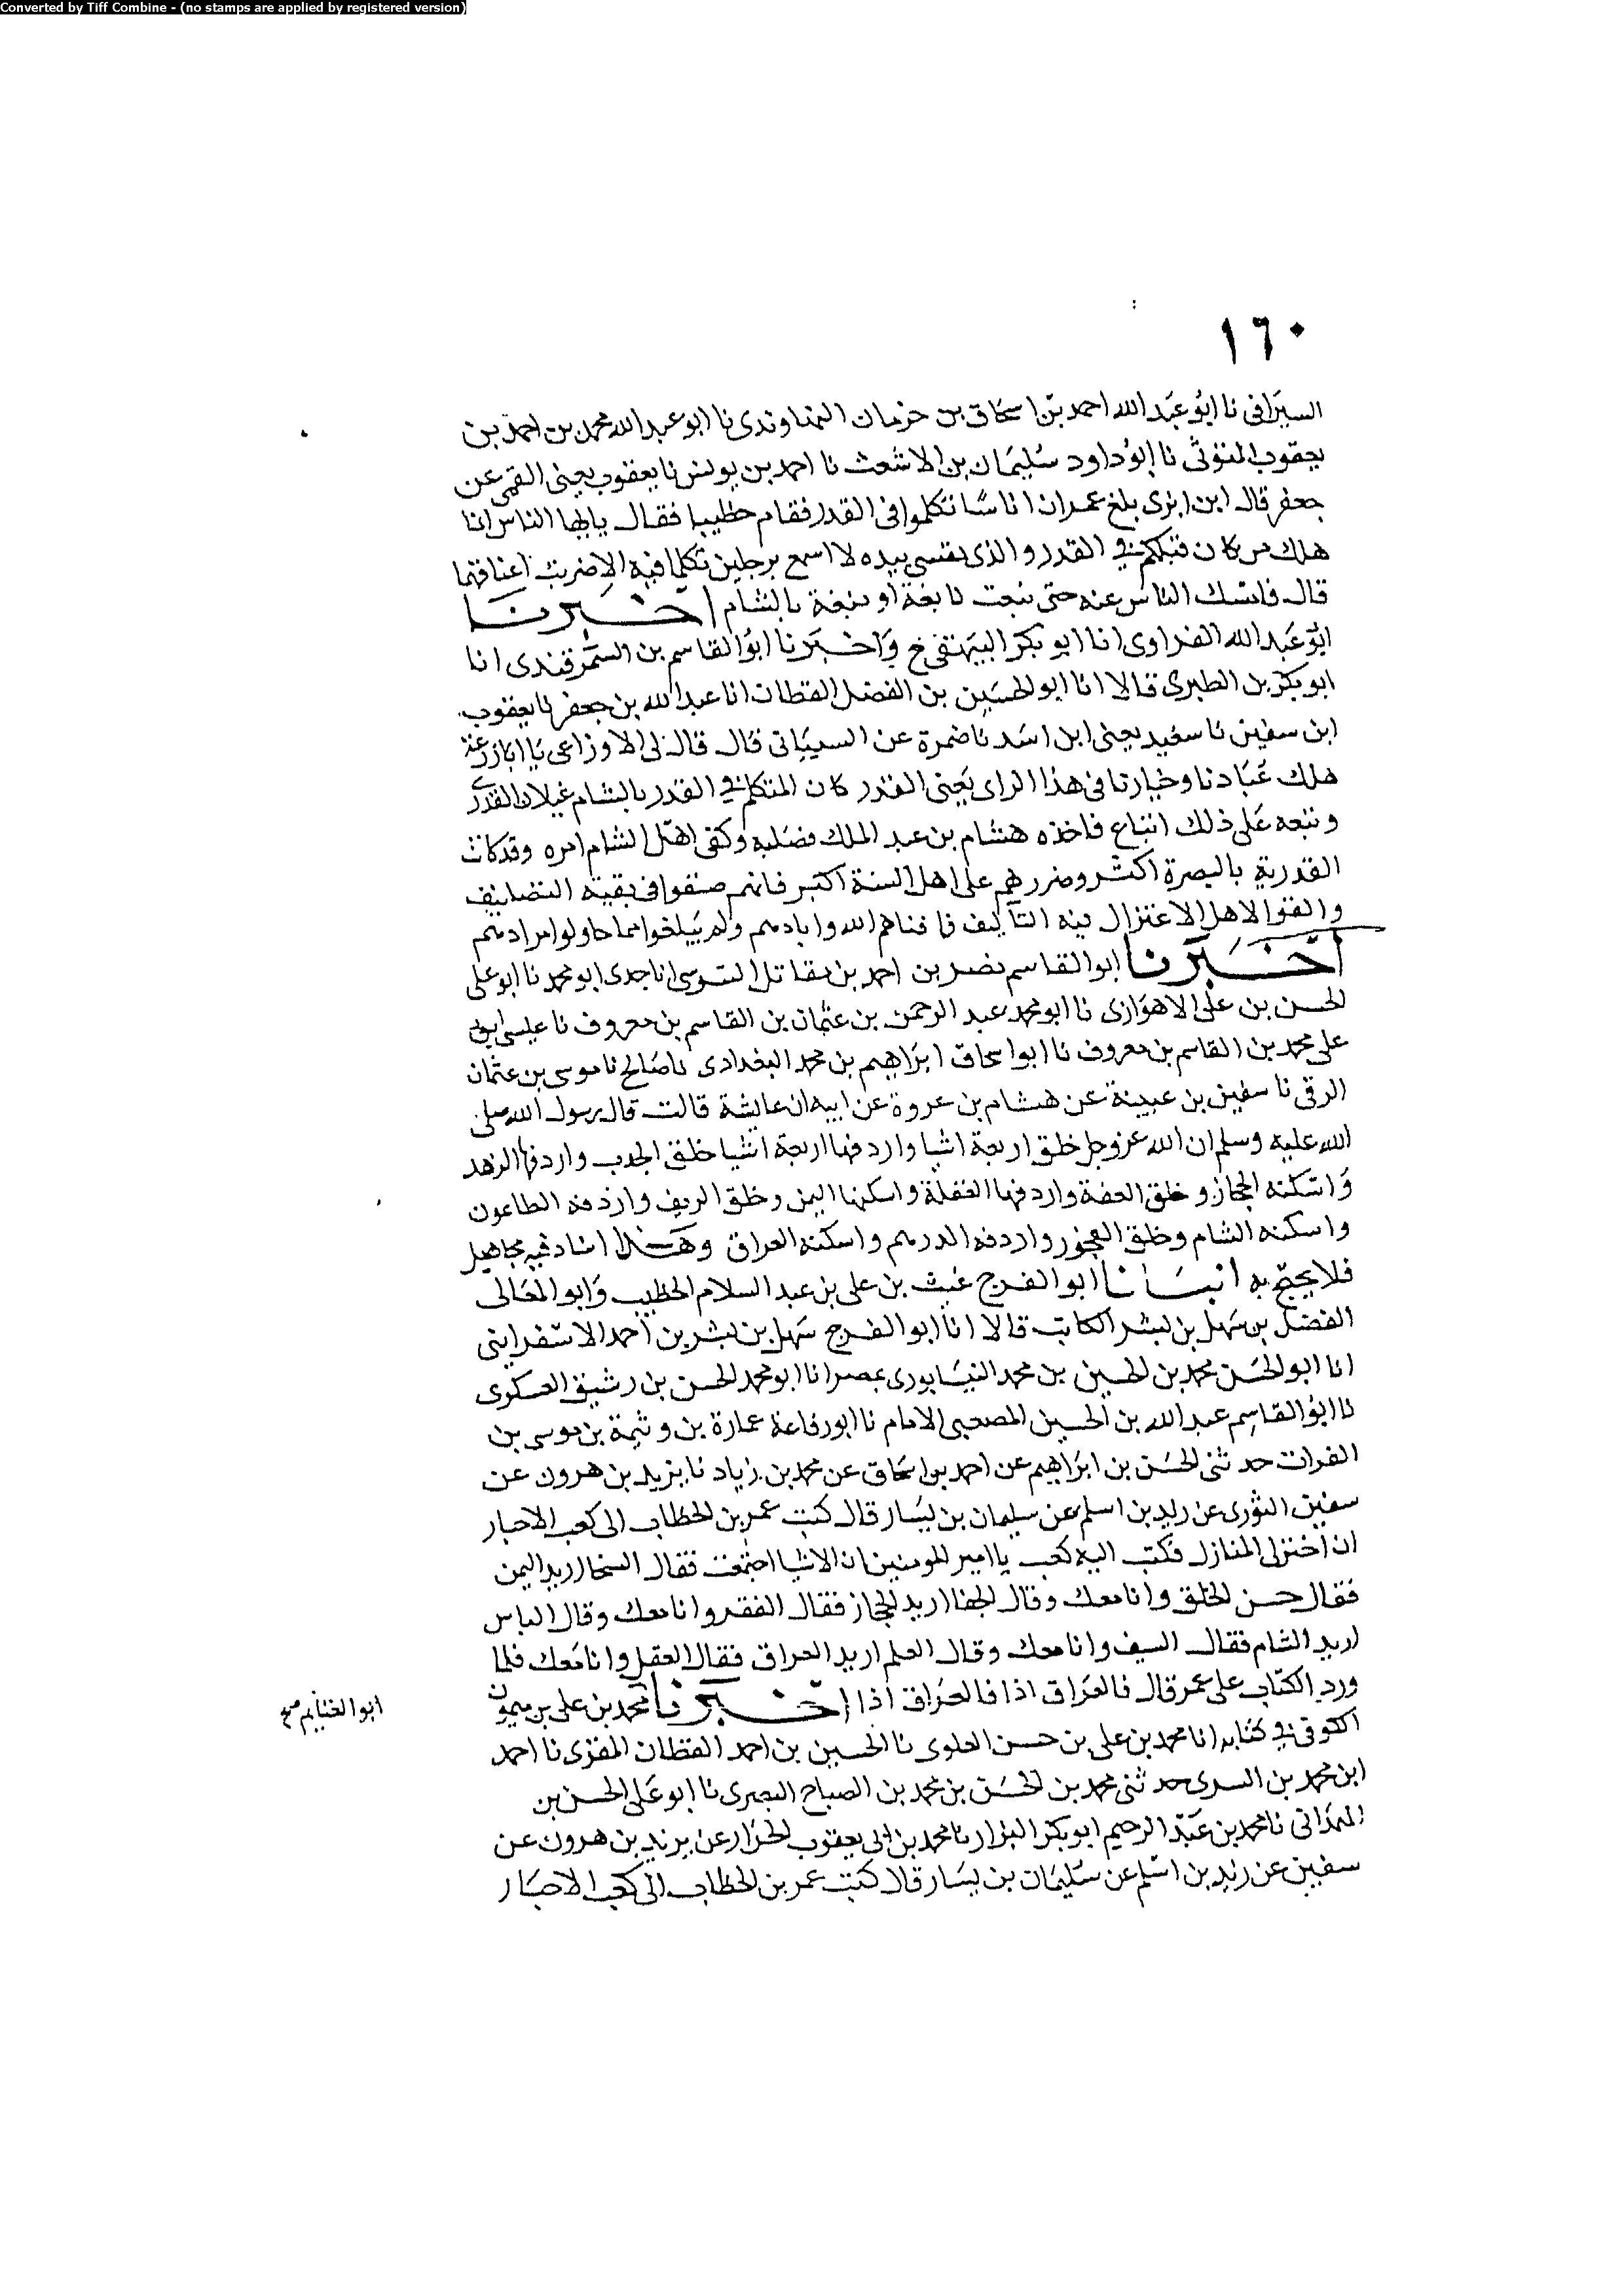 Converted by Tiff Combine - (no stamps are applied by registered version)
١٦٠
السيرافى نا ابو عبد الله احمد بن اسحاق بن خرمان النهاوندى نا ابو عبد الله محمد بن احمد بن
يعقوب المتوثى نا ابو داود سليمان بن الاشعث نا احمد بن يونس نا يعقوب يعنى القمى عن
جعفر قال ابن ابزى بلغ عمر ان اناسا تكلموا فى القدر فقام خطيبا فقال يا ايها الناس انما
هلك من كان قبلكم فى القدر والذى نفسى بيده لا اسمع برجلين تكلما فيه الا ضربت اعناقهما
قال فامسك الناس عنه حتى نبعت نابغة او نبغة بالشام اخبرنا
ابو عبد الله الفراوى انا ابو بكر البيهقى ح واخبرنا ابو القاسم بن السمرقندى انا
ابو بكر بن الطبرى قالا انا ابو الحسين بن الفضل القطان انا عبد الله بن جعفر نا يعقوب
ابن سفين نا سعيد يعنى ابن اسد نا ضمرة عن السيبانى قال قال لى الاوزاعى يا ابا زرعة
هلك عبادنا وخيارنا فى هذا الراى يعنى القدر كان المتكلم فى القدر بالشام غيلان القدرى
وتبعه على ذلك اتباع فاخذه هشام بن عبد الملك فصلبه وكفى اهل الشام امره وقد كانت
القدرية بالبصرة اكثر وضررهم على اهل السنة اكبر فانهم صنفوا فى بقيته التصانيف
والفوا لاهل الاعتزال فيه التآليف فافناهم الله وابادهم ولم يبلغوا مما حاولوا مرادهم
اخبرنا ابو القاسم نصر بن احمد بن مقاتل السوسى انا جدى ابو محمد نا ابو على
الحسن بن على الاهوازى نا ابو محمد عبد الرحمن بن عثمان بن القاسم بن معروف نا عليى ابو
على محمد بن القاسم بن معروف نا ابو اسحاق ابراهيم بن محمد البغدادى نا صالح نا موسى بن عثمان
الرقى نا سفين بن عيينة عن هشام بن عروة عن ابيه ان عايشة قالت قال رسول الله صلى
الله عليه وسلم ان الله عز وجل خلق اربعة اشيا واردفها اربعة اشيا خلق الجدب واردفه الزهد
واسكنه الحجاز وخلق العفة واردفها الغفلة واسكنها اليمن وخلق الريف واردفه الطاعون
واسكنه الشام وخلق الفجور واردفه الدرهم واسكنه العراق وهذا اسناد فيه مجاهيل
فلا يحتج به انبانا ابو الفرج غيث بن على بن عبد السلام الخطيب وابو المعالى
الفضل بن سهل بن بشر الكاتب قالا انا ابو الفرج سهل بن بشر بن احمد الاسفراينى
انا ابو الحسن محمد بن الحسين بن محمد النيسابورى بمصر انا ابو محمد الحسن بن رشيق العسكرى
نا ابو القاسم عبد الله بن الحسين المصحبى الامام نا ابو رفاعة عمارة بن وثيمة بن موسى بن
الفرات حدثنى الحسن بن ابراهيم عن احمد بن اسحاق عن محمد بن زياد نا يزيد بن هرون عن
سفين الثورى عن زيد بن اسلم عن سليمان بن يسار قال كتب عمر بن الخطاب الى كعب الاحبار
ان اختر لى المنازل فكتب اليه كعب يا امير المومنين ان الاشيا اجتمعت فقال السخا اريد اليمن
فقال حسن الخلق وانا معك وقال الجفا اريد الحجاز فقال الفقر وانا معك وقال الباس
اريد الشام فقال السيف وانا معك وقال العلم اريد العراق فقال العقل وانا معك فلما
ورد الكتاب على عمر قال فالعراق اذا فالعراق اذا اخبرنا محمد بن على بن ميمون
ابو الغنايم صح
الكوفى فى كتابه انا محمد بن على بن حسن العلوى نا الحسين بن احمد القطان المقرى نا احمد
ابن محمد بن السرى حدثنى محمد بن الحسن بن محمد بن الصباح البصرى نا ابو على الحسن بن
الهمذانى نا محمد بن عبد الرحيم ابو بكر البزار نا محمد بن ابى يعقوب الخزاز عن يزيد بن هرون عن
سفين عن زيد بن اسلم عن سليمان بن يسار قال كتب عمر بن الخطاب الى كعب الاحبار